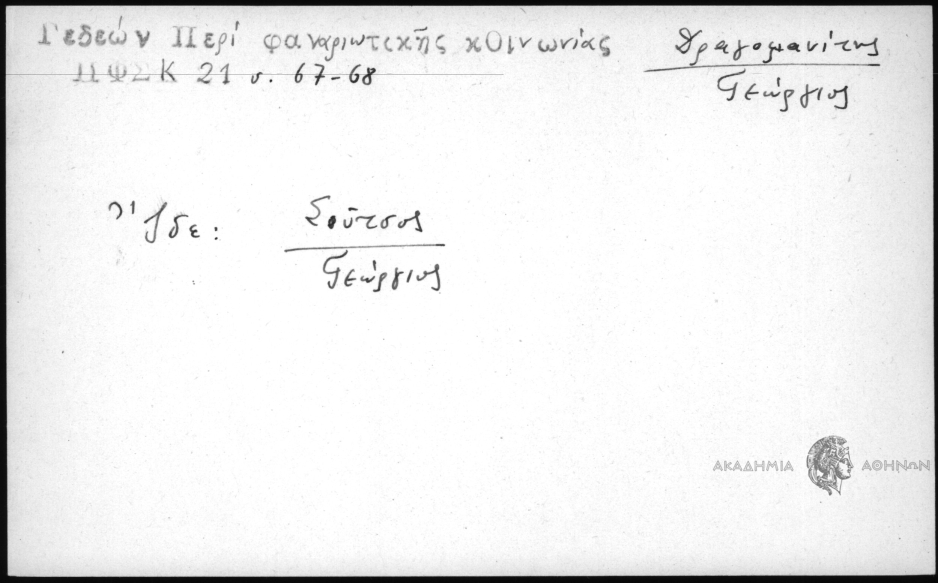 Γεδεών Περί φαναριωτικῆς κοινωνίας
ΠΦΣΚ 21 σ. 67-68
Δραγομανίτης
Γεώργιος
Ἴδε: Σοῦτσος
Γεώργιος
ΑΚΑΔΗΜΙΑ ΑΘΗΝΩΝ